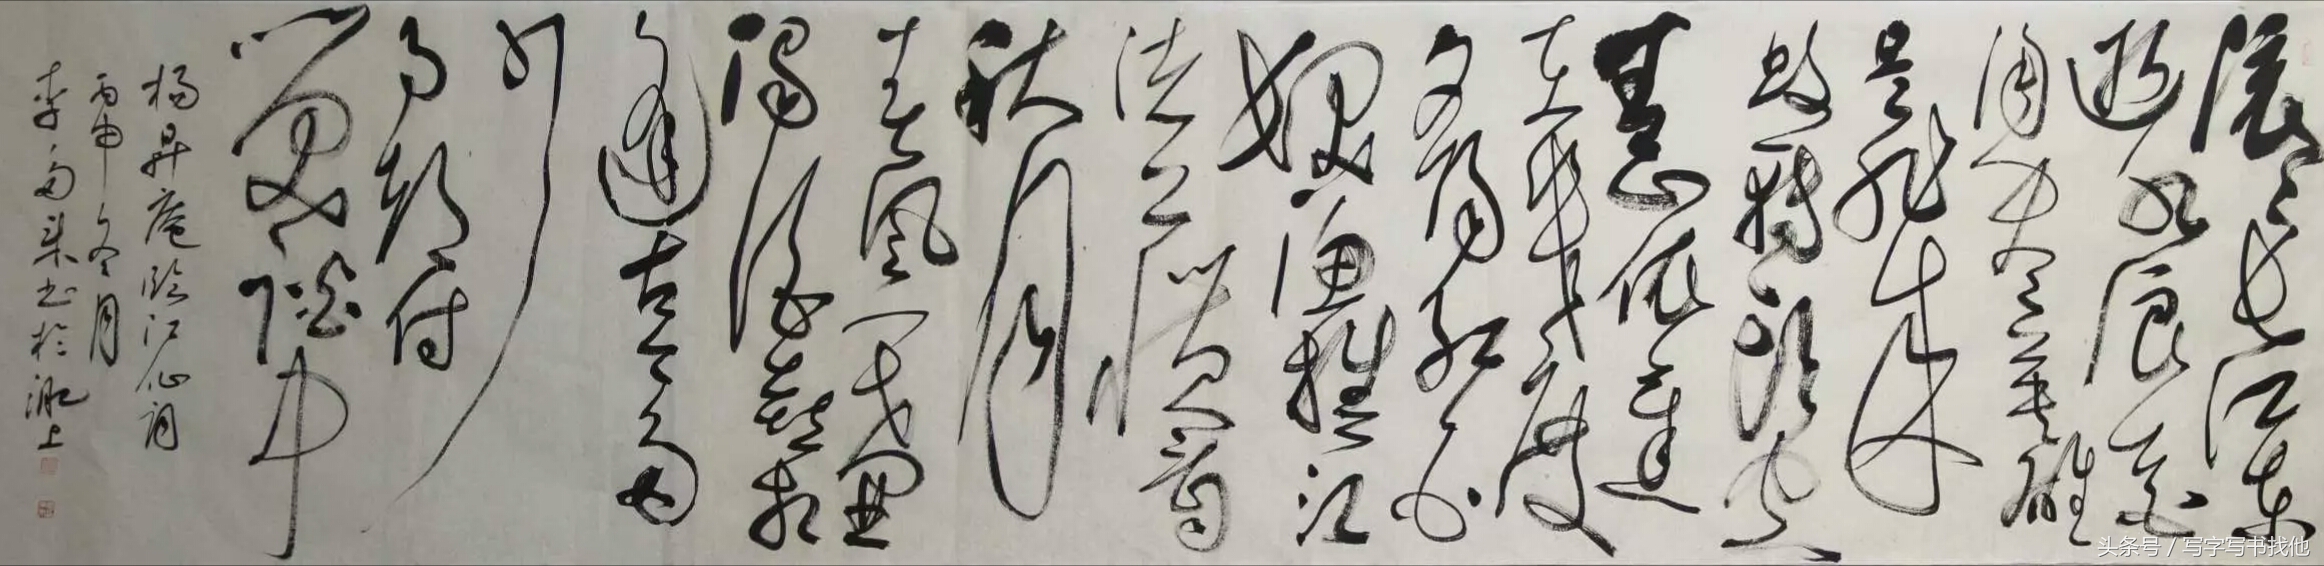 滚滚长江东
逝水浪花
淘尽英雄
是非成
败转头空
青山依旧
在几度
夕阳红白
发渔樵江
渚上惯看
秋月
春风一壶
浊酒喜相
逢古今多
少
事都付
笑谈中
杨升庵临江仙词
丙申冬月
李 来书於 上
头条号 / 写字写书找他